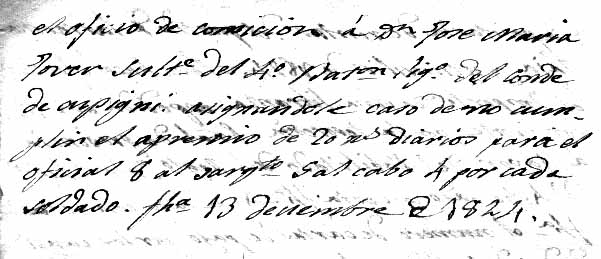 el oficio de comicion á Dn Jose Maria
Tover Subte del 4o Baton Ligo del conde
de aspigni asignandole caso de no cum-
plir el apremio de 20 rs diarios para el
oficial 8 al sargto 5 al cabo 4 por cada
soldado. fha 13 deciembre d 1824.